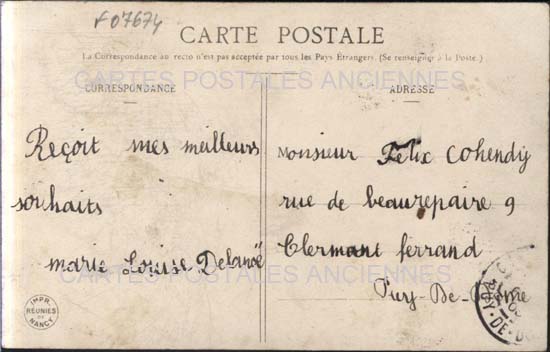 F07674
CARTE POSTALE
La Correspondance au recto n'est pas acceptée par tous les Pays Etrangers. (Se renseigner à la Poste.)
CARTES POSTALES ANCIENNES
CORRESPONDANCE
ADRESSE
Reçoit mes meilleurs
souhaits
marie Louise Delanoë
Monsieur Felix Cohendy
rue de beaurepaire 9
Clermant ferrand
Puy-De-Dome
CARTES POSTALES ANCIENNES
IMPR.
RÉUNIES
DE
NANCY
PUY-DE-D